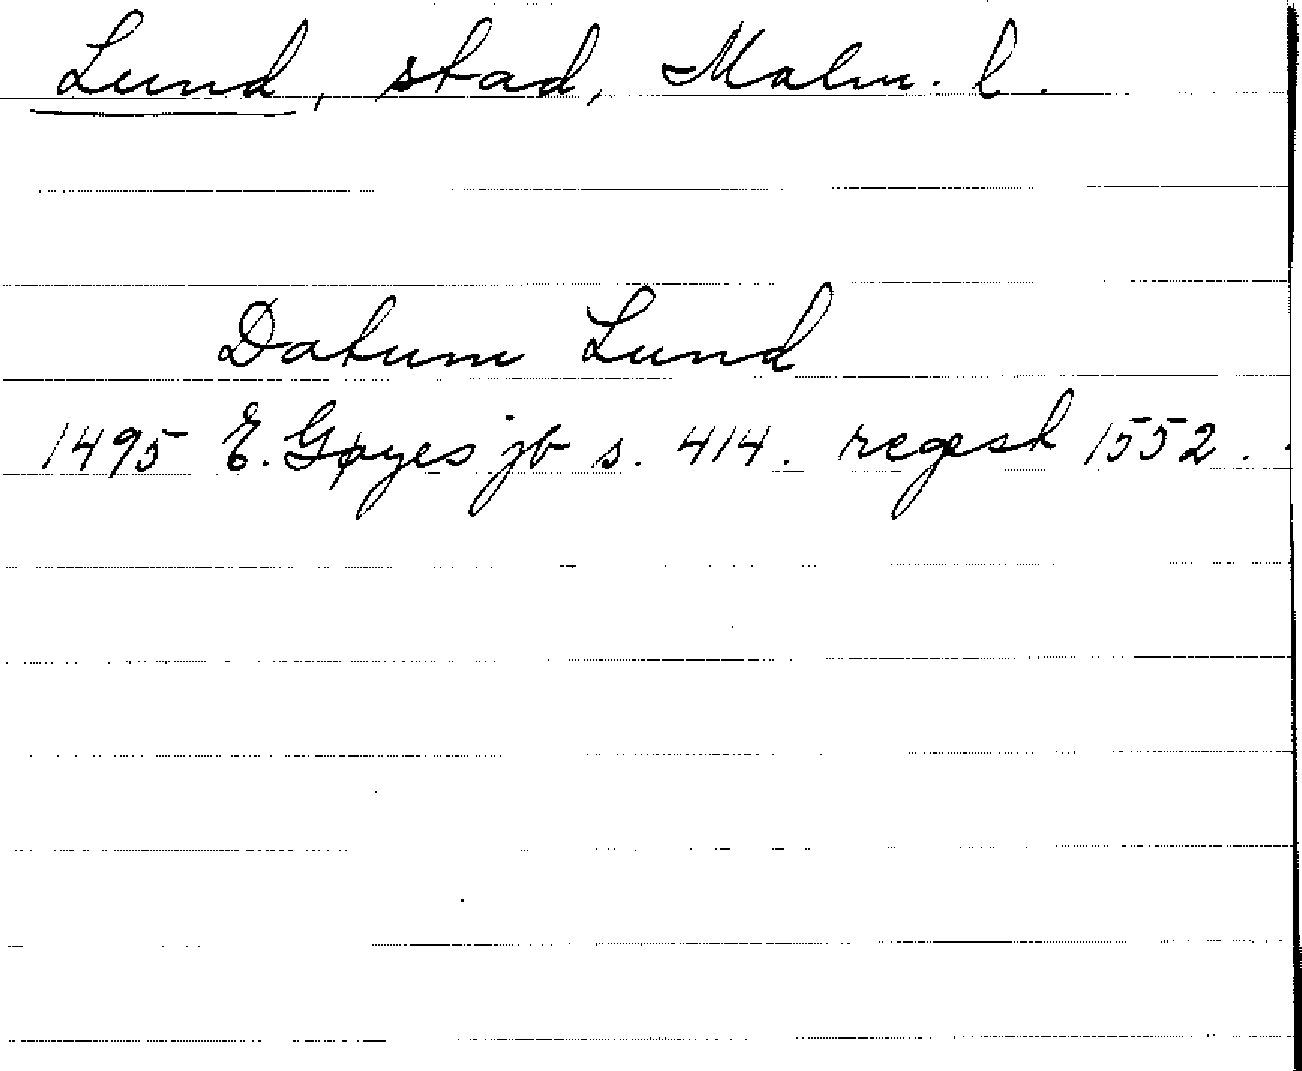 Lund, stad, Malm. l.
Datum Lund
1495 E. Gøyes jb s. 414. regest 1552.